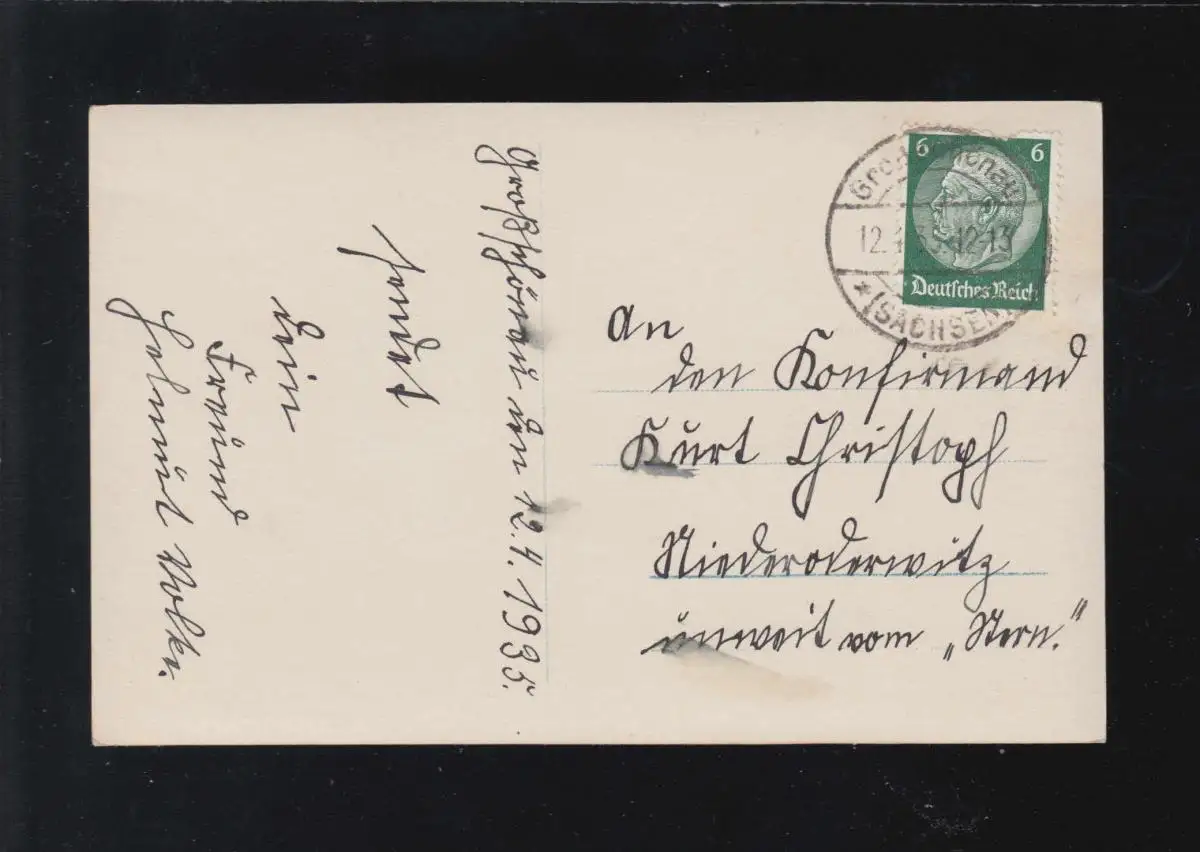 Großschönau den 12.4.1935.
sendet
dein
Freund
Helmut Volke.
6 6
Deutsches Reich
12. 12-13
* (SACHSEN)
An
den Konfirmand
Kurt Christoph
Niederoderwitz
unweit vom „Stern."